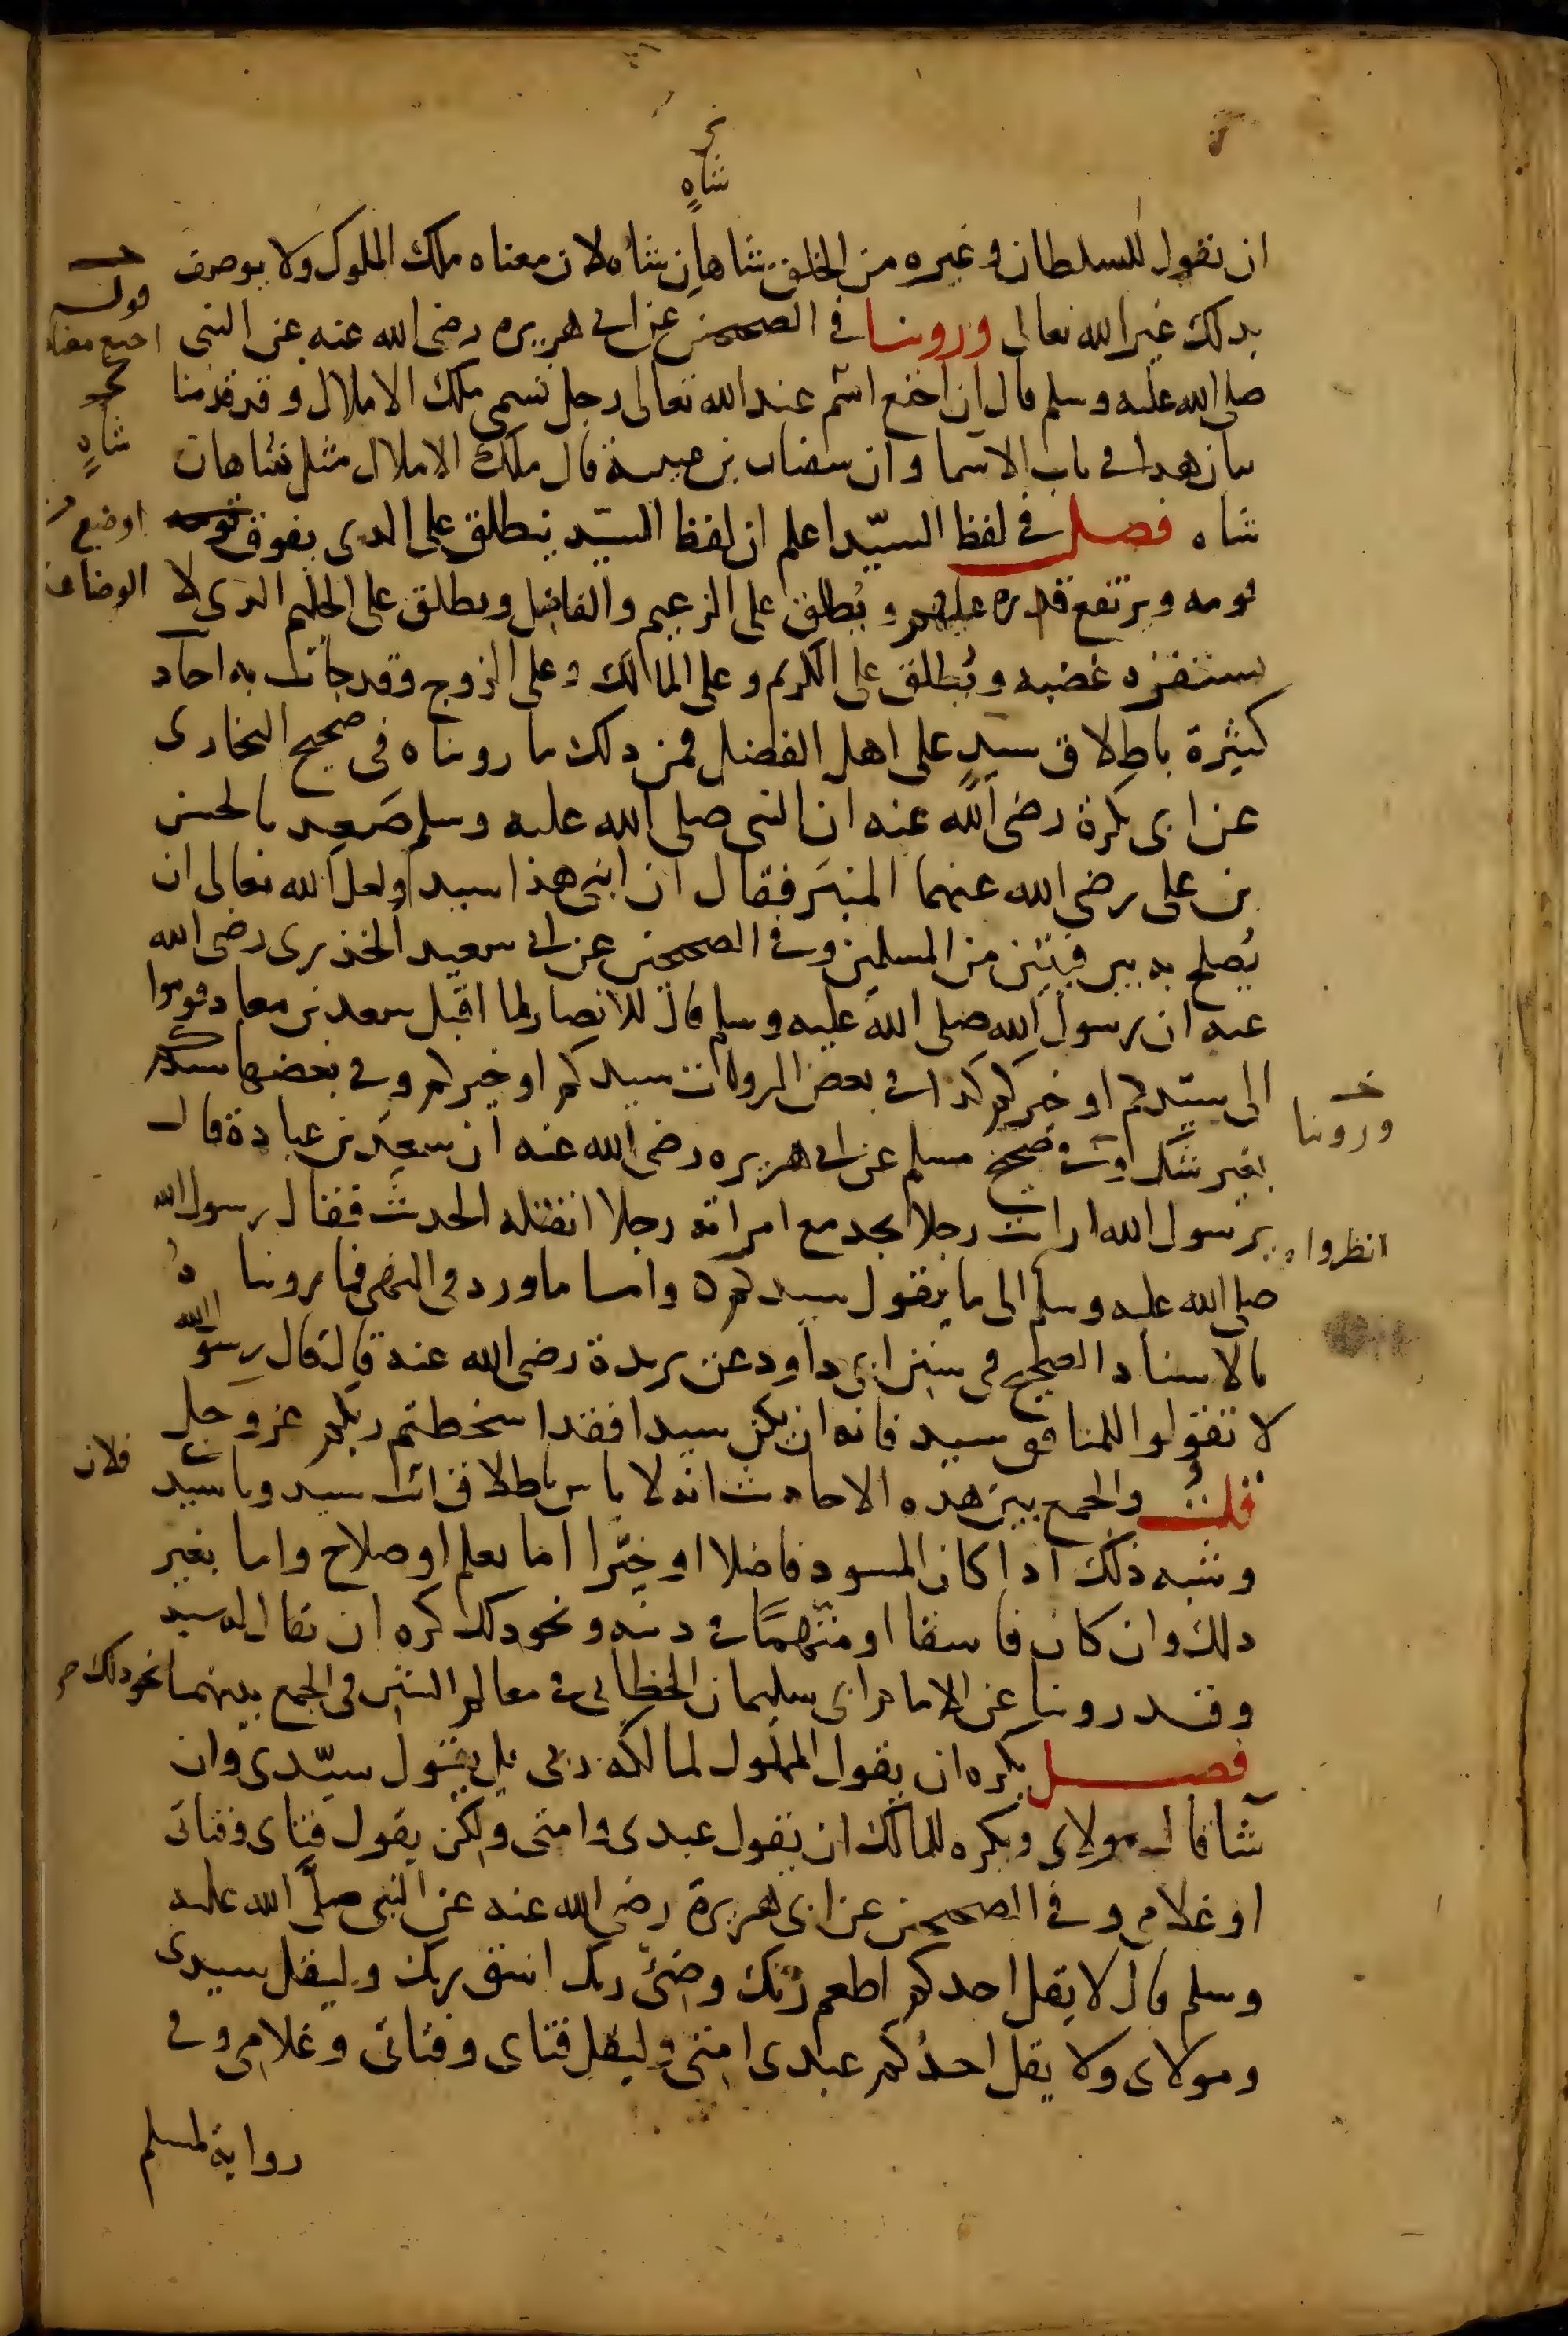 شاه
ان تقول للسلطان وغيره من الخلق شاهان شاه لان معناه ملك الملوك ولا يوصف
بذلك غير الله تعالى وروينا في الصحيحين عن ابي هريرة رضي الله عنه عن النبي
صلى الله عليه وسلم قال ان اخنع اسم عند الله تعالى رجل تسمى ملك الاملاك وقد قدمنا
بيان هذا في باب الاسما وان سفيان بن عيينة قال ملك الاملاك مثل شاهان
شاه فصل في لفظ السيّد اعلم ان لفظ السيّد يطلق على الذي يفوق
قومه ويرتفع قدره عليهم ويُطلق على الزعيم والفاضل ويطلق على الحليم الذي لا
يستفزه غضبه ويُطلق على الكريم وعلى المالك وعلى الزوج وقد جات به احاد
كثيرة باطلاق سيدٍ على اهل الفضل فمن ذلك ما رويناه في صحيح البخاري
عن ابي بكرة رضي الله عنه ان النبي صلى الله عليه وسلم صَعِد بالحسن
بن علي رضي الله عنهما المنبر فقال ان ابني هذا سيد ولعل الله تعالى ان
يُصلح به بين فيتين من المسلمين وفي الصحيحين عن ابي سعيد الخدري رضي الله
عنه ان رسول الله صلى الله عليه وسلم قال للانصار لما اقبل سعد بن معاذ قوموا
الى سيّدكم او خيركم كذا في بعض الروايات سيدكم او خيركم وفي بعضها سيدكم
بغير شك وفي صحيح مسلم عن ابي هريره رضي الله عنه ان سعد بن عبادة قال
يرسول الله ارايت رجلا يجد مع امراته رجلا ايقتله الحديث فقال رسول الله
صلى الله عليه وسلم الى ما يقول سيدكم واما ما ورد في النهي فما رويناهُ
بالاسناد الصحيح في سنن ابي داود عن بريدة رضي الله عنه قال قال رسول الله
لا تقولوا للمنافق سيد فانه ان يكن سيدا فقد اسخطتم ربكم عز وجل
قلتُ والجمع بين هذه الاحاديث انه لا باس باطلاق فلان سيد ويا سيّد
وشبه ذلك اذا كان المسود فاضلا او خيّرا اما بعلم او صلاح واما بغير
ذلك وان كان فاسقا او متّهمًا في دينه ونحو ذلك كره ان يقال له سيد
وقد روينا عن الامام ابي سليمان الخطابي في معالم السنن في الجمع بينهما نحو ذلك
فصل يكره ان يقول المملوك لمالكه ربي بل يقول سيّدي وان
شا قال مولاي ويكره للمالك ان يقول عبدي وامتي ولكن يقول فتاي وفتاتي
او غلامي وفي الصحيحين عن ابي هريرة رضي الله عنه عن النبي صلى الله عليه
وسلم قال لا يقل احدكم اطعم ربّك وضئ ربك اسق ربك وليقل سيدي
ومولاي ولا يقل احدُكم عبدي امتي وليقل فتاي وفتاتي وغلامي وفي
رواية لمسلم
قوله
اخنع معناه
شاهٍ
اوضع
فلان
وروينا
انظروا